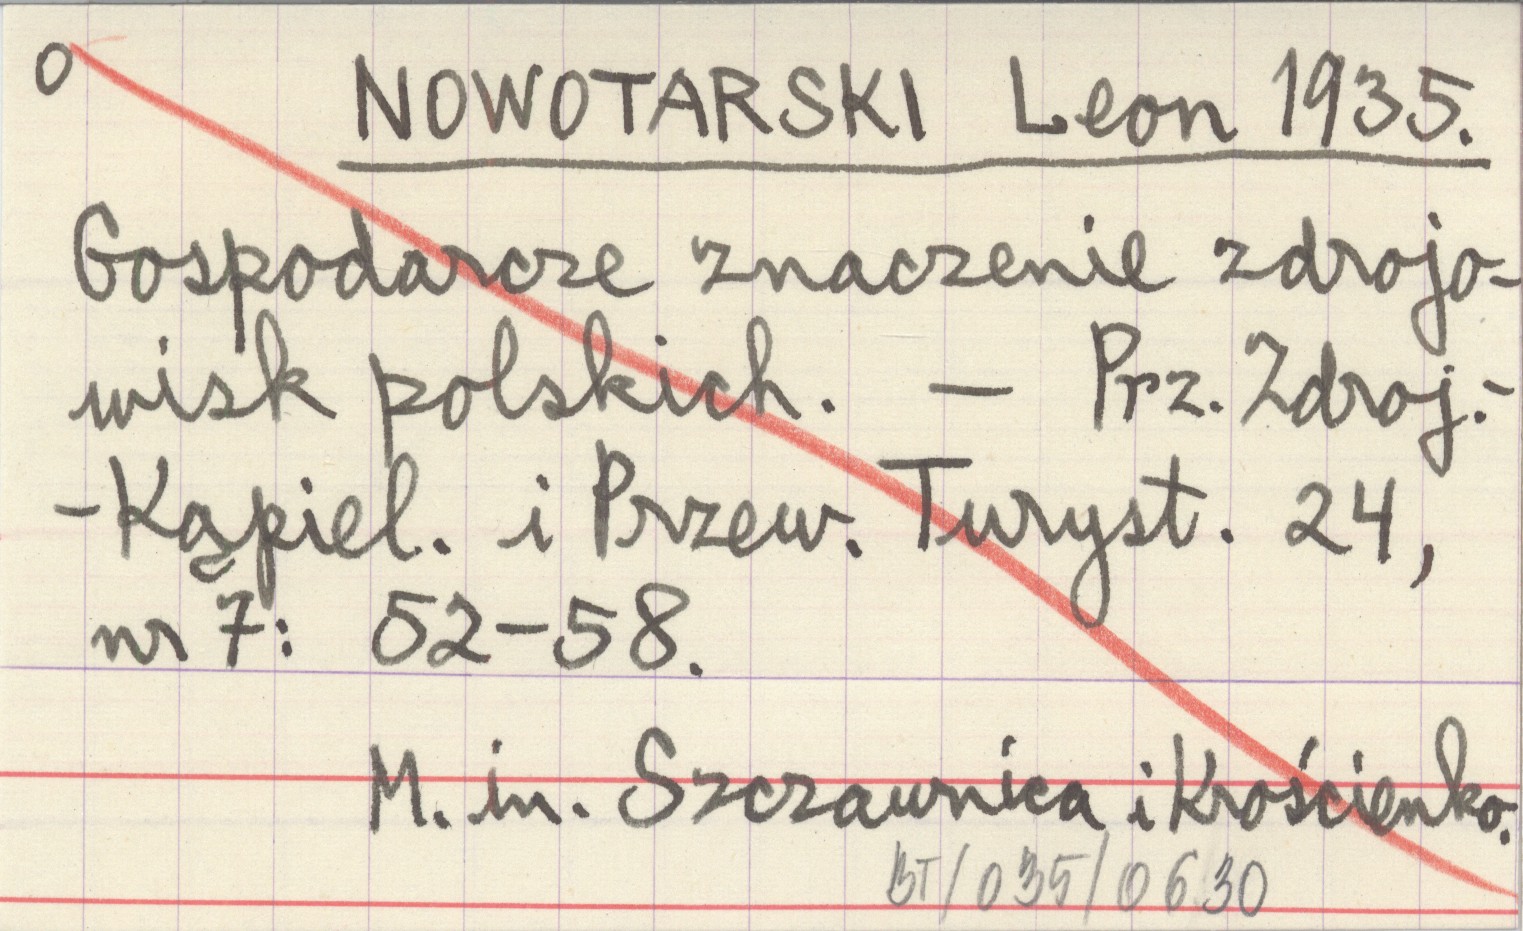 O
NOWOTARSKI Leon 1935.
Gospodarcze znaczenie zdrojo-
wisk polskich. — Prz. Zdroj.-
-Kąpiel. i Przew. Turyst. 24,
nr 7: 52-58.
M. in. Szczawnica i Krościenko.
BT/035/0630